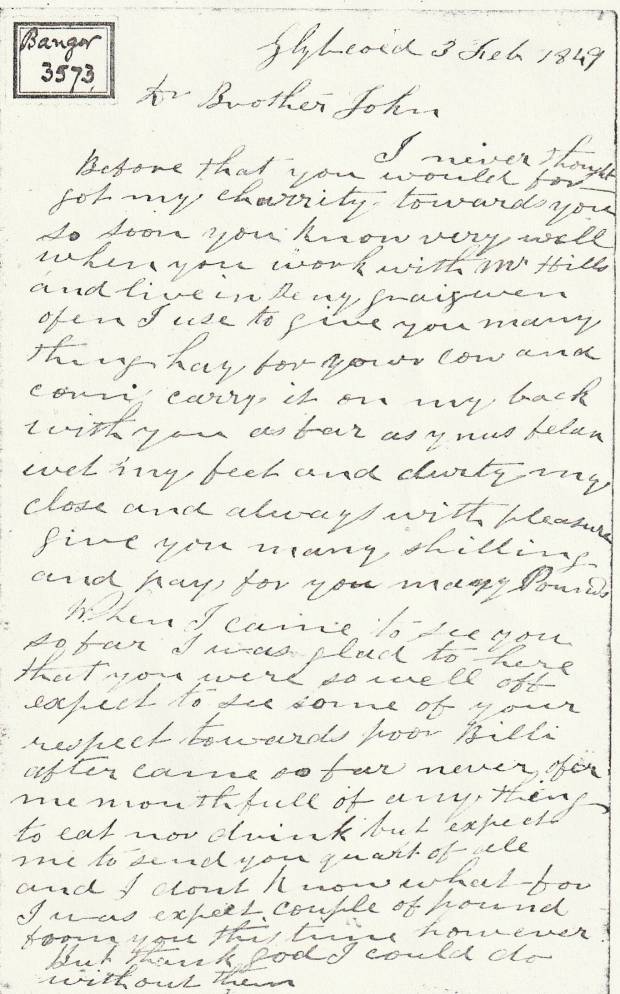 Bangor
3573
Glybcoed 3 Feb 1849
Dr Brother John
I never thought
Before that you would for
got my charrity towards you
so soon you know very well
when you work with Mr Hills
and live in graigwen
ofen I use to give you many
thing hay for your cow and
corn carry it on my back
with you as far as ynus
wet my feet and durty my
close and always with pleasure
give you many shilling
and pay for you many Pounds
When I came to see you
so far I was glad to here
that you were so well off
expect to see some of your
respect towards poor Billi
after came so far never ofer
me mouthfull of any thing
to eat nor drink but expect
me to send you quart of ale
and I dont know what for
I was expect couple of pound
from you this time however
But thank god I could do
without them